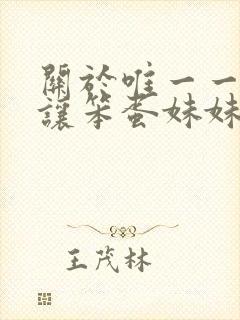 關於唯一一
讓笨蛋妹妹
王茂林